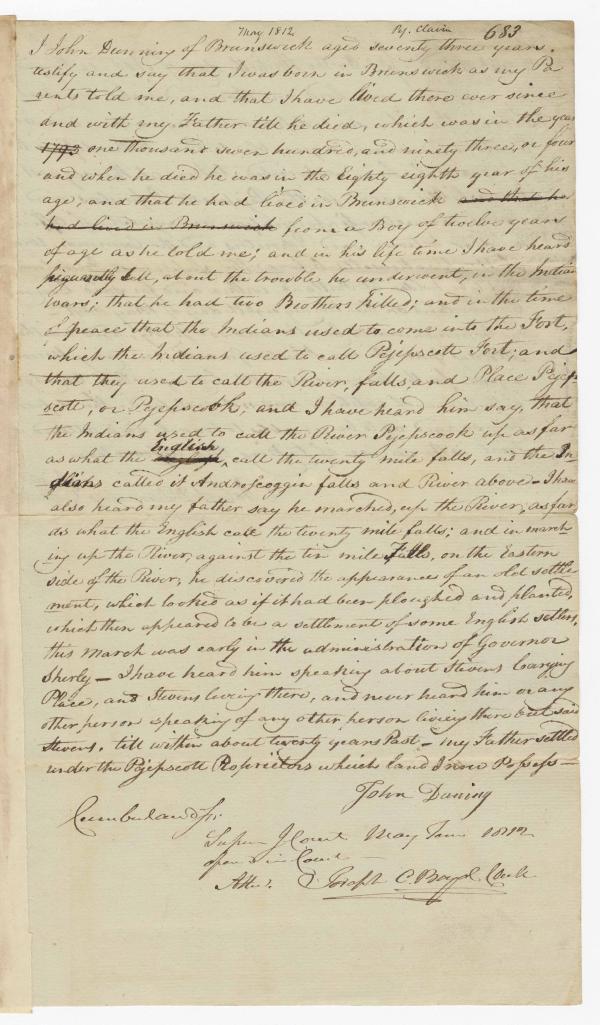 May 1812 Pj. Claim 683
I John Dunning of Brunswick aged seventy three years.
testify and say that I was born in Brunswick as my Pa
rents told me, and that I have lived there ever since
and with my Father till he died, which was in the year
1793 one thousand seven hundred, and ninety three, or four
and when he died he was in the Eighty eighth year of his
age, and that he had lived in Brunswick and that he
had lived in Brunswick from a Boy of twelve years
of age as he told me; and in his life time I have heard
tell, about the trouble he underwent, in the Indian
Wars; that he had two Brothers killed; and in the time
of peace that the Indians used to come into the Fort,
which the Indians used to call Pejepscott Fort; and
that they used to call the River, falls, and Place Pejep
scott, or Pejepscook, and I have heard him say, that
the Indians used to call the River Pejepscook up as far
as what the English, call the twenty mile falls, and the In
dians called it Androscoggin falls and River above - I have
also heard my father say he marched, up the River, as far
as what the English call the twenty mile falls; and in march-
ing up the River, against the ten mile falls, on the Eastern
side of the River, he discovered the appearances of an old settle
ment, which looked as if it had been ploughed and planted,
which then appeared to be a settlement of some English settlers,
this march was early in the administration of Governor
Shirly - I have heard him speaking about Stevens Carrying
Place, and Stevens living there, and never heard him or any
other person speaking of any other person living there but said
Stevens, till within about twenty years Past - my Father settled
under the Pejepscott Proprietors which land I now Possess -
John Duning
Cumberland Ss.
Supr. J Court May Term 1812
open in Court -
Attest. Joseph C. Boyd Clerk